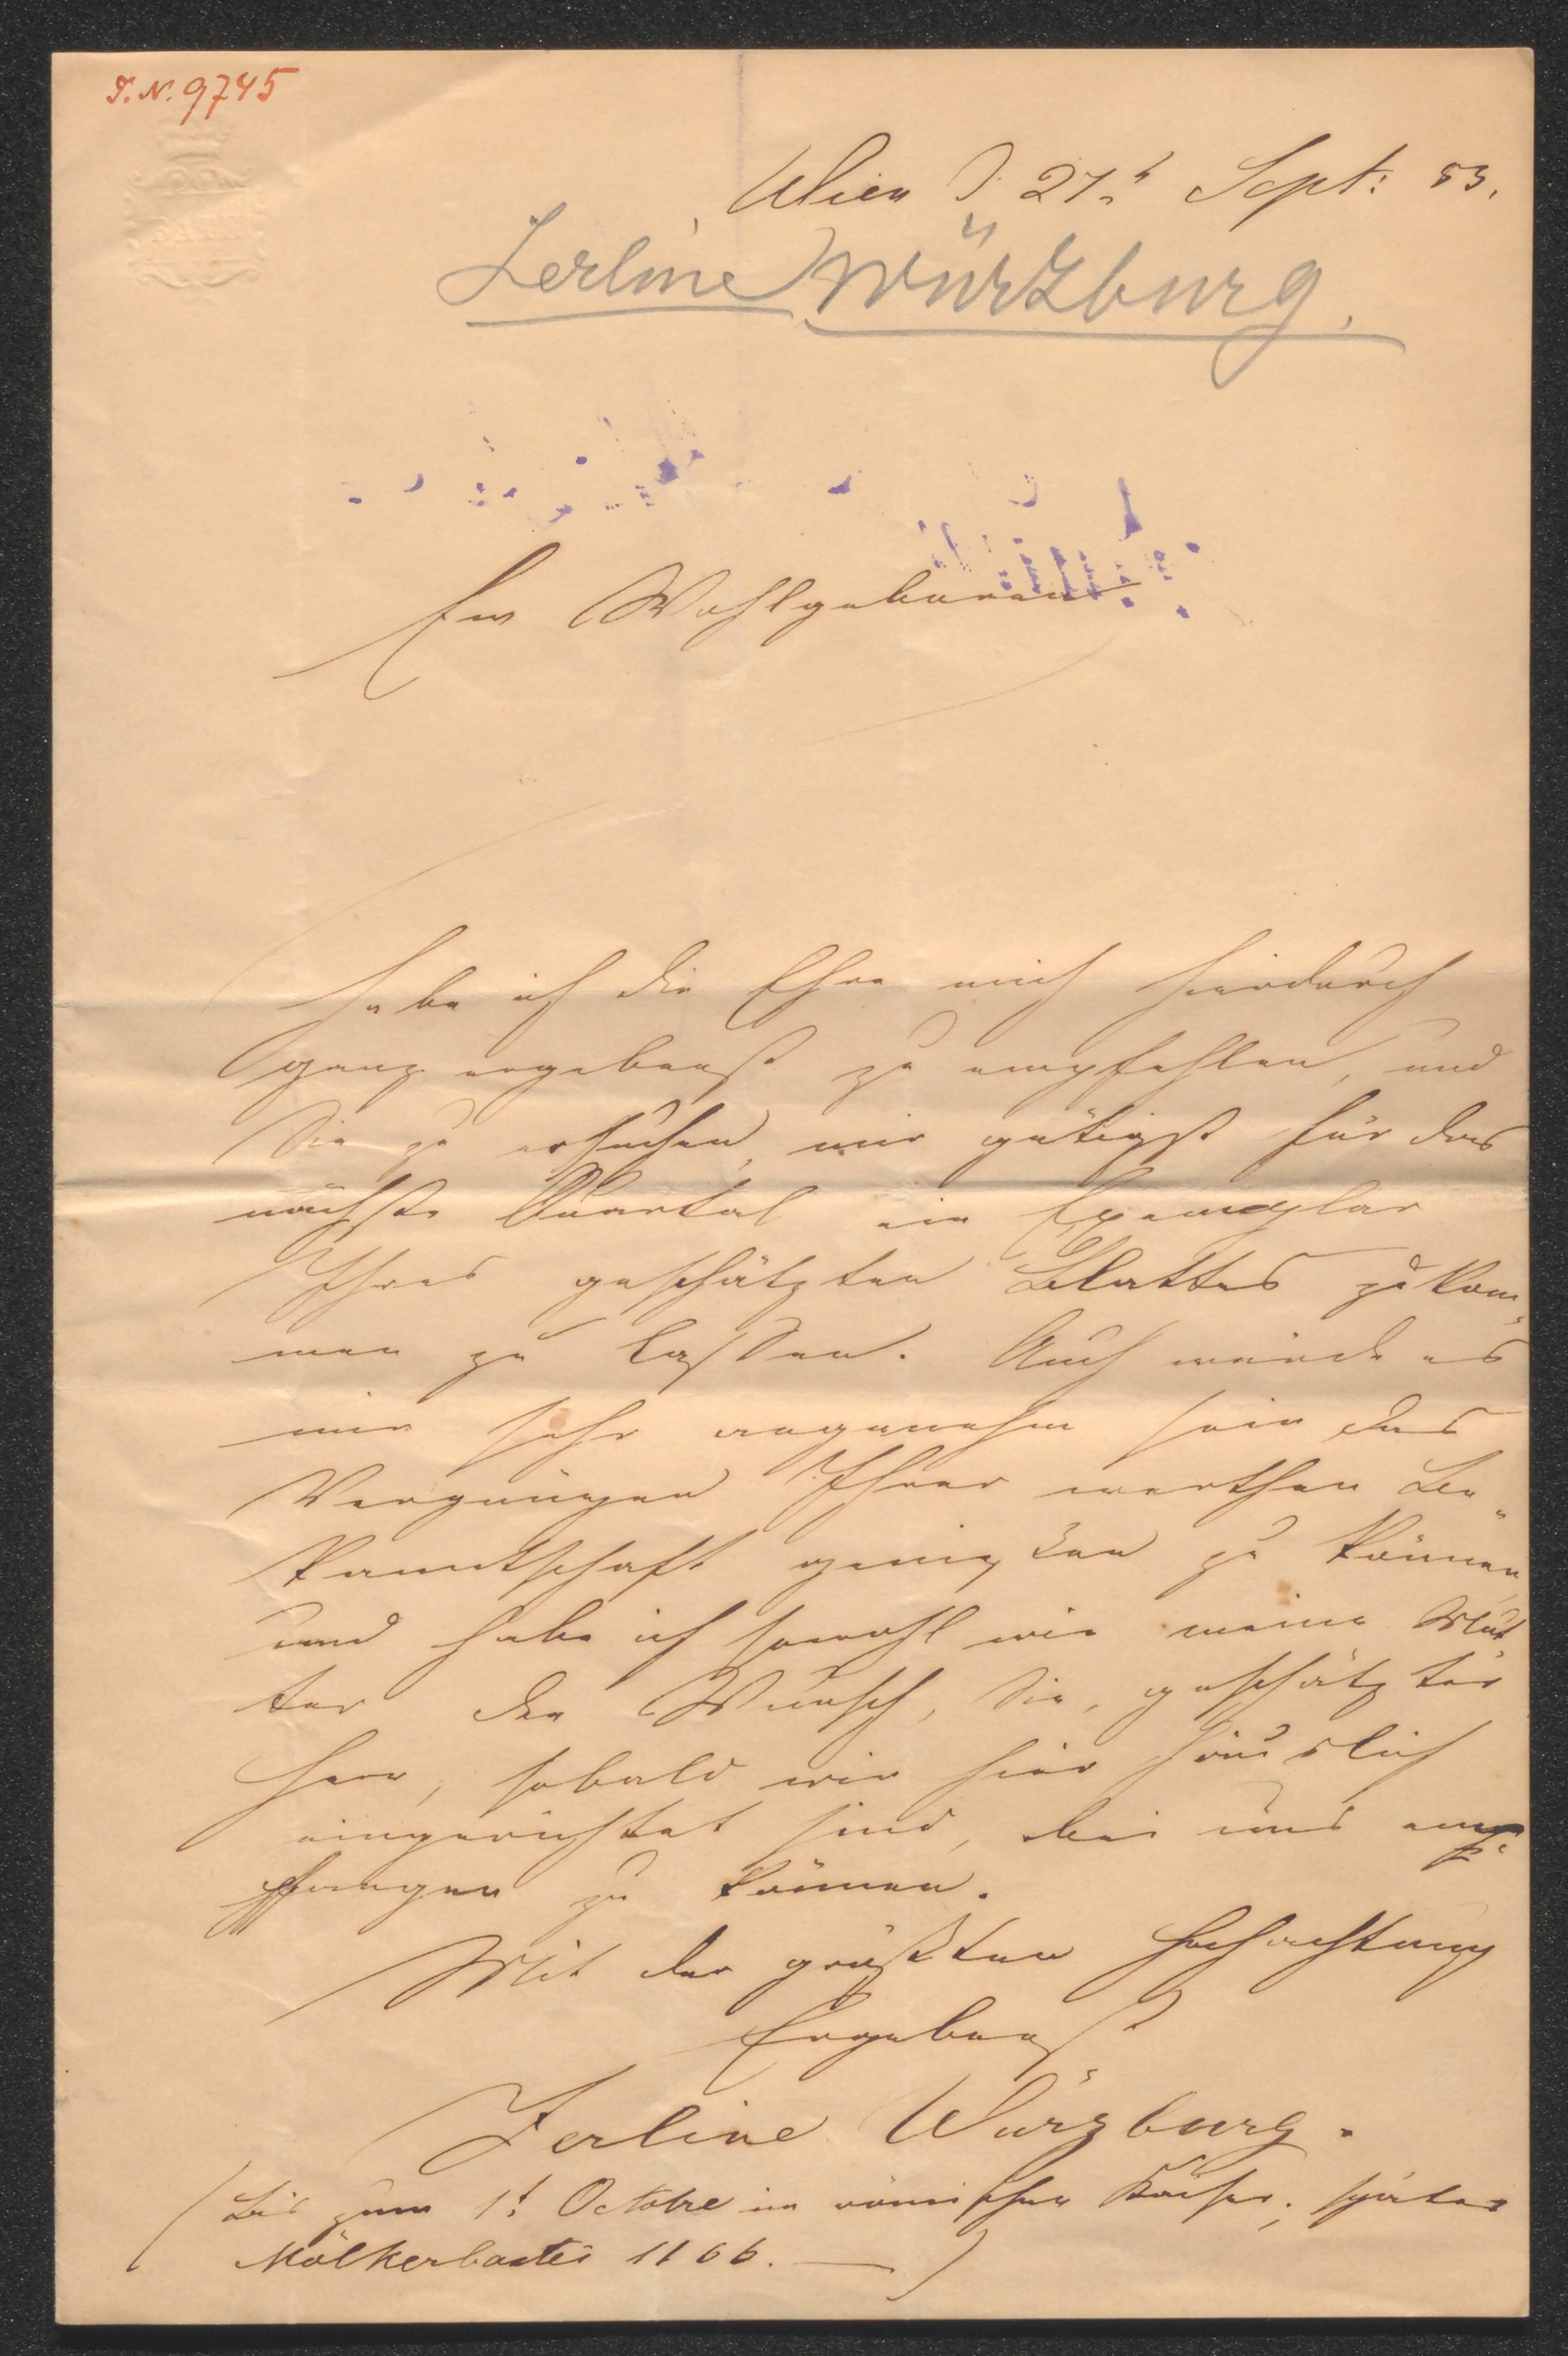 I.N. 9745
Wien d. 27. Sept: 53.
Zerline Würzburg.
Ew Wohlgeboren
habe ich die Ehre mich hierdurch
ganz ergebenst zu empfehlen, und
Sie zu ersuchen, mir gütigst für das
nächste Quartal ein Exemplar
Ihres geschätzten Blattes zukom„
men zu lassen. Auch würde es
mir sehr angenehm sein das
Vergnügen Ihrer werthen Be„
kanntschaft genießen zu können,
und habe ich sowohl wie meine Mut
ter den Wunsch, Sie, geschätzter
Herr, sobald wir hier häuslich
eingerichtet sind, bei uns emp
pfangen zu können.
Mit der größten Hochachtung
Ergebenst
Zerline Würzburg.
(Bis zum 1t Octobre im römischen Kaiser, später
Mölkerbastei 1166. —)